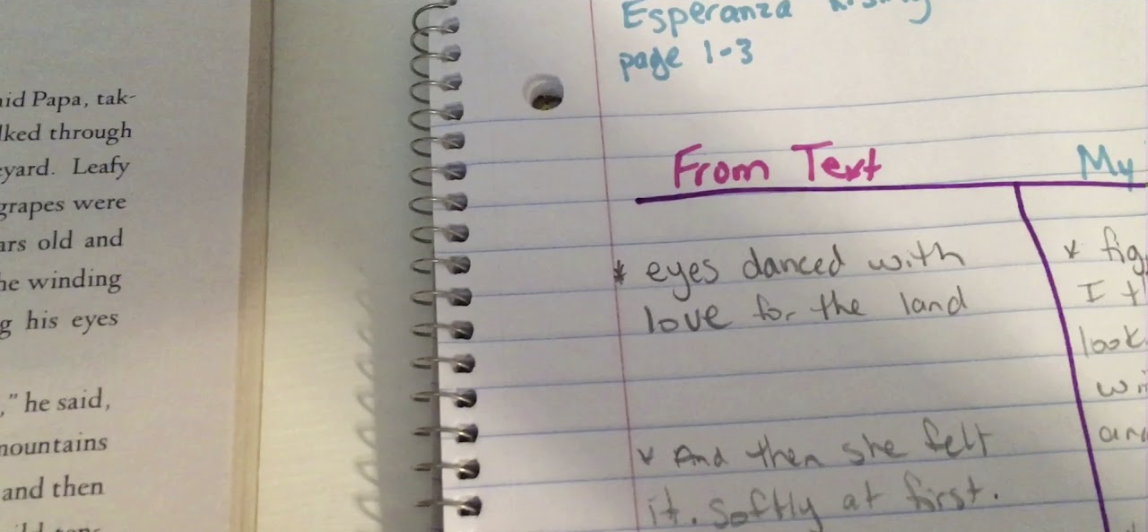 aid Papa, tak-
lked through
yard. Leafy
grapes were
ars old and
he winding
g his eyes
," he said,
mountains
and then
Esperanza Rising
page 1-3
From Text
My
* eyes danced with
love for the land
* And then she felt
it. Softly at first.
* fig
I t
look
wi
and